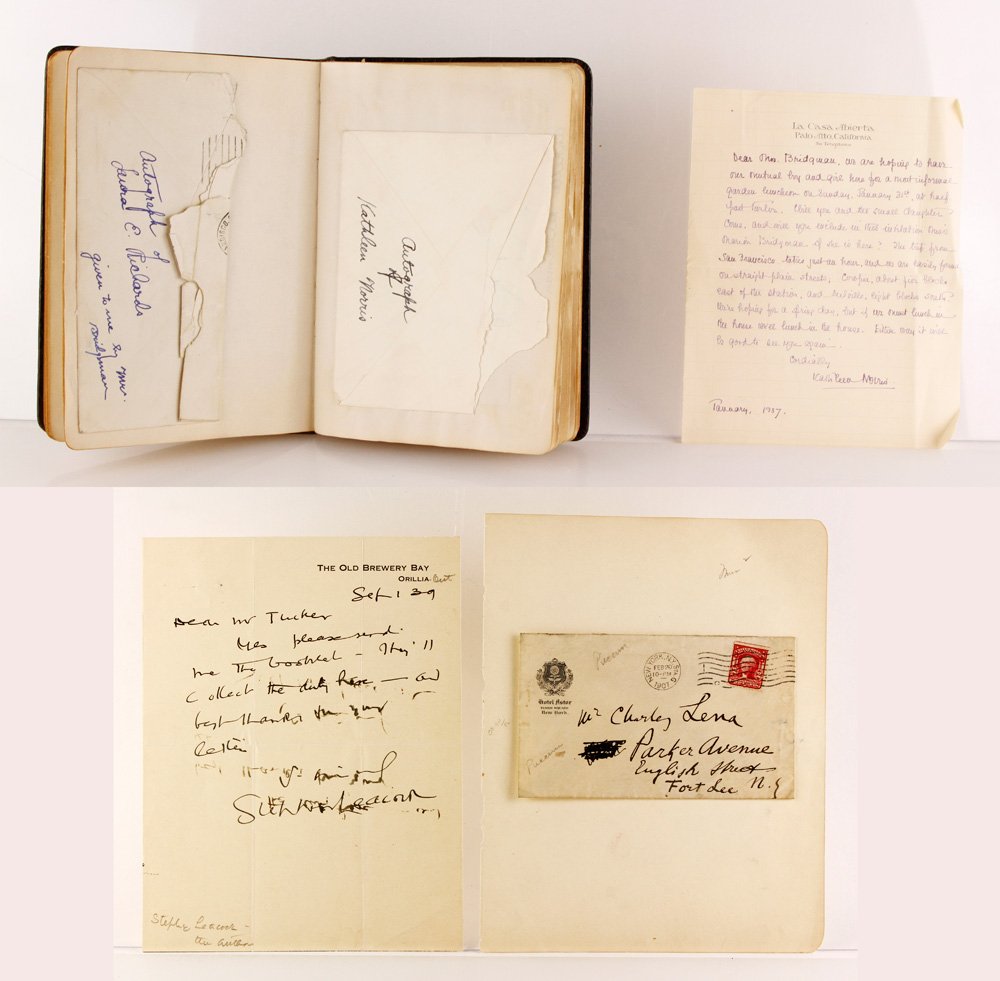 Autograph
of
Laura E. Richards
given to me by Mrs.
Bridgman
Autograph
of
Kathleen Norris
La Casa Abierta
Palo Alto, California
No Telephone
Dear Mrs. Bridgman, we are hoping to have
our mutual boy and girl here for a most informal
garden luncheon on Sunday, January 31st, at half
past twelve. Will you and the small daughter
come, and will you include in this invitation
Marion Bridgman if she is here? The trip from
San Francisco takes just an hour, and we are easily found
on straight plain streets, Cowper, about five blocks
east of the station, and Melville, eight blocks south.
We're hoping for a fine day, but if we must lunch in
the house we'll lunch in the house. Either way it will
be good to see you again.
Cordially
Kathleen Norris.
January, 1937.
THE OLD BREWERY BAY
ORILLIA Ont
Sept 1 39
Dear Mr Tucker
Yes please send
me the booklet - they'll
collect the duty here - and
best thanks for your
letter
Stephen Leacock
Stephen Leacock -
the author
Puccini
Hotel Astor
New York
NEW YORK, N.Y. STA. G
FEB 20
10-PM
1907
Mr Charley Lena
Parker Avenue
English Street
Fort Lee N.J
Puccini